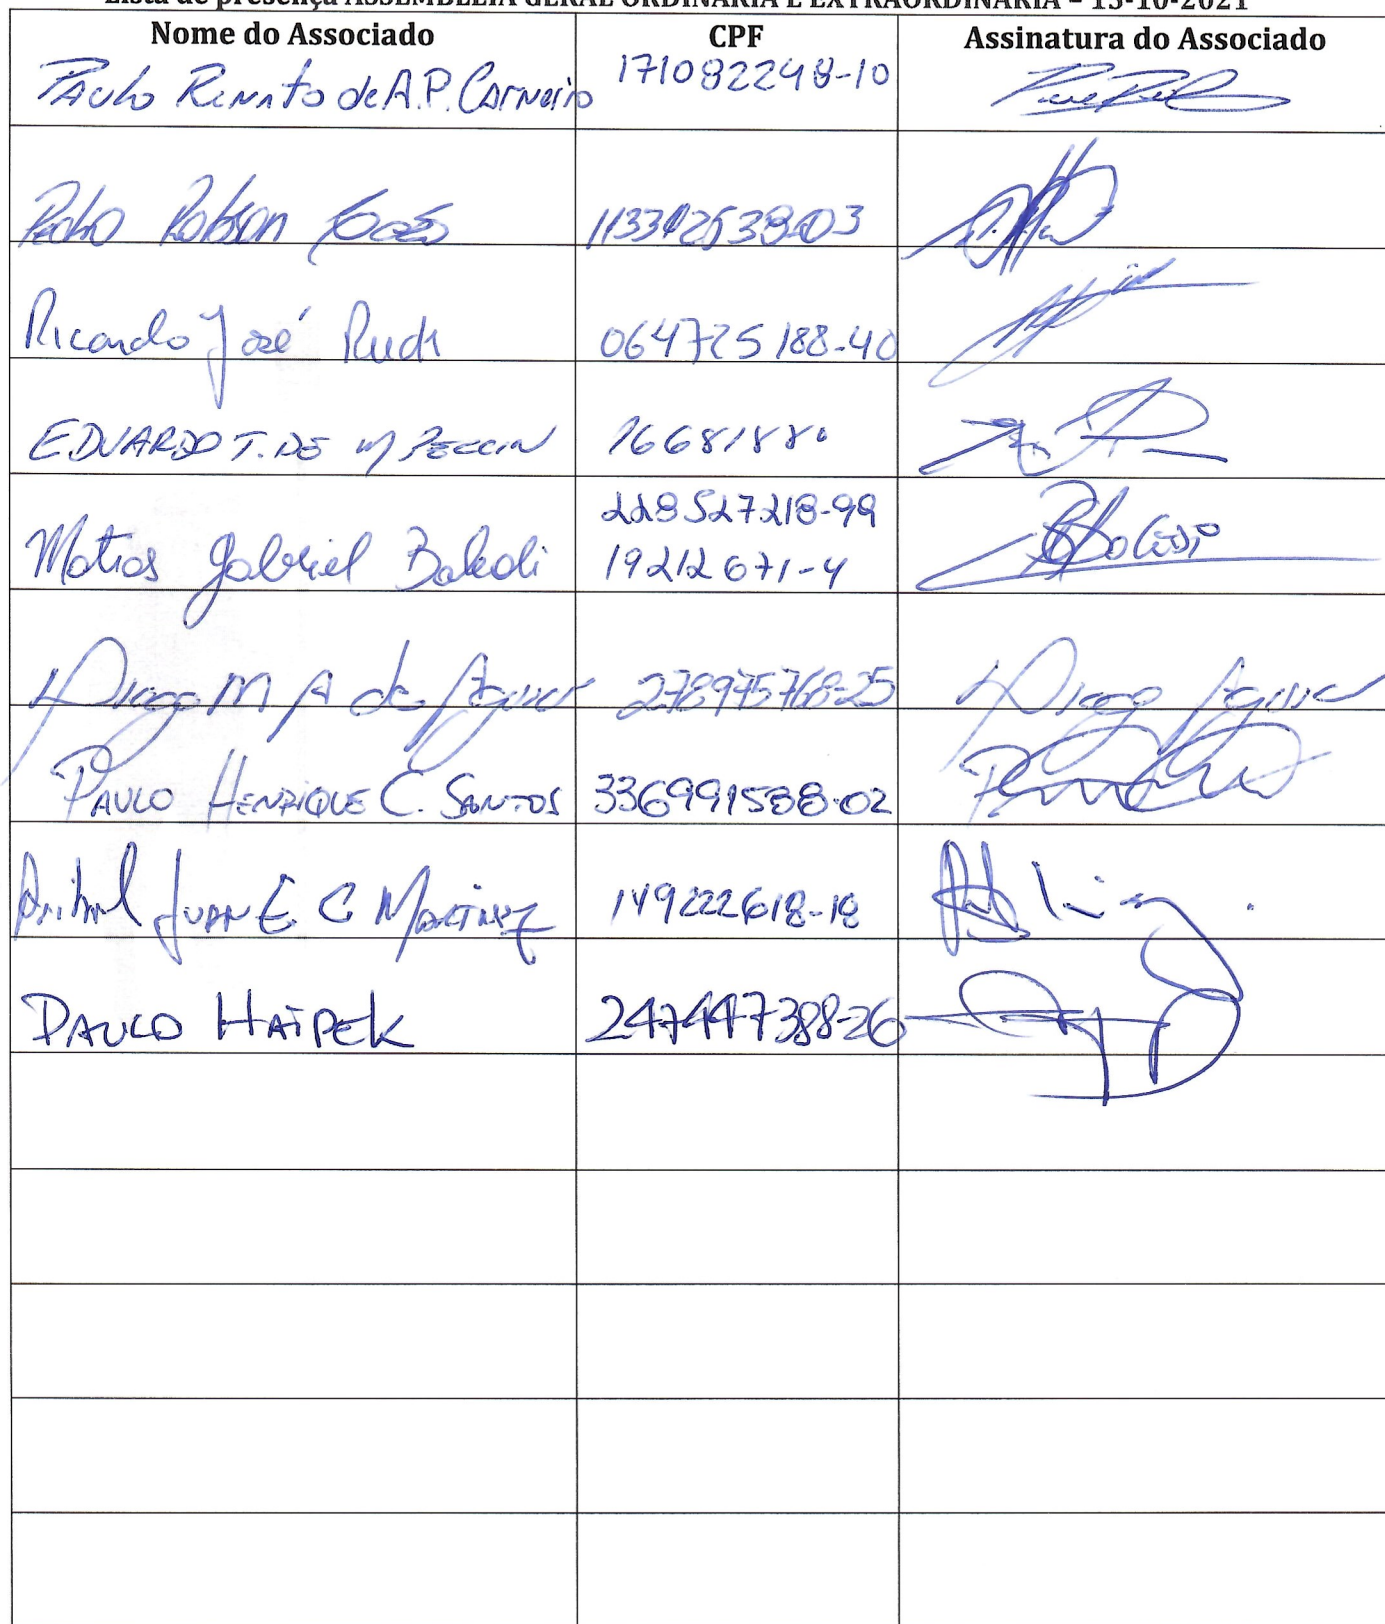 Lista de presença ASSEMBLEIA GERAL ORDINÁRIA E EXTRAORDINÁRIA – 13-10-2021
Nome do Associado CPF Assinatura do Associado
Paulo Renato de A.P. Carneiro 171082248-10
Pedro Robson 03
Ricardo José 064725188-40
EDUARDO T. DE M 16681880
228527218-99
Matias Gabriel 19212671-4
Diogo M A de Aguiar 278975768-25 Diogo Aguiar
PAULO HENRIQUE C. SANTOS 336991588-02
Anibal JUAN E C MARTINEZ 149222618-18
PAULO HAIPEK 247447388-26